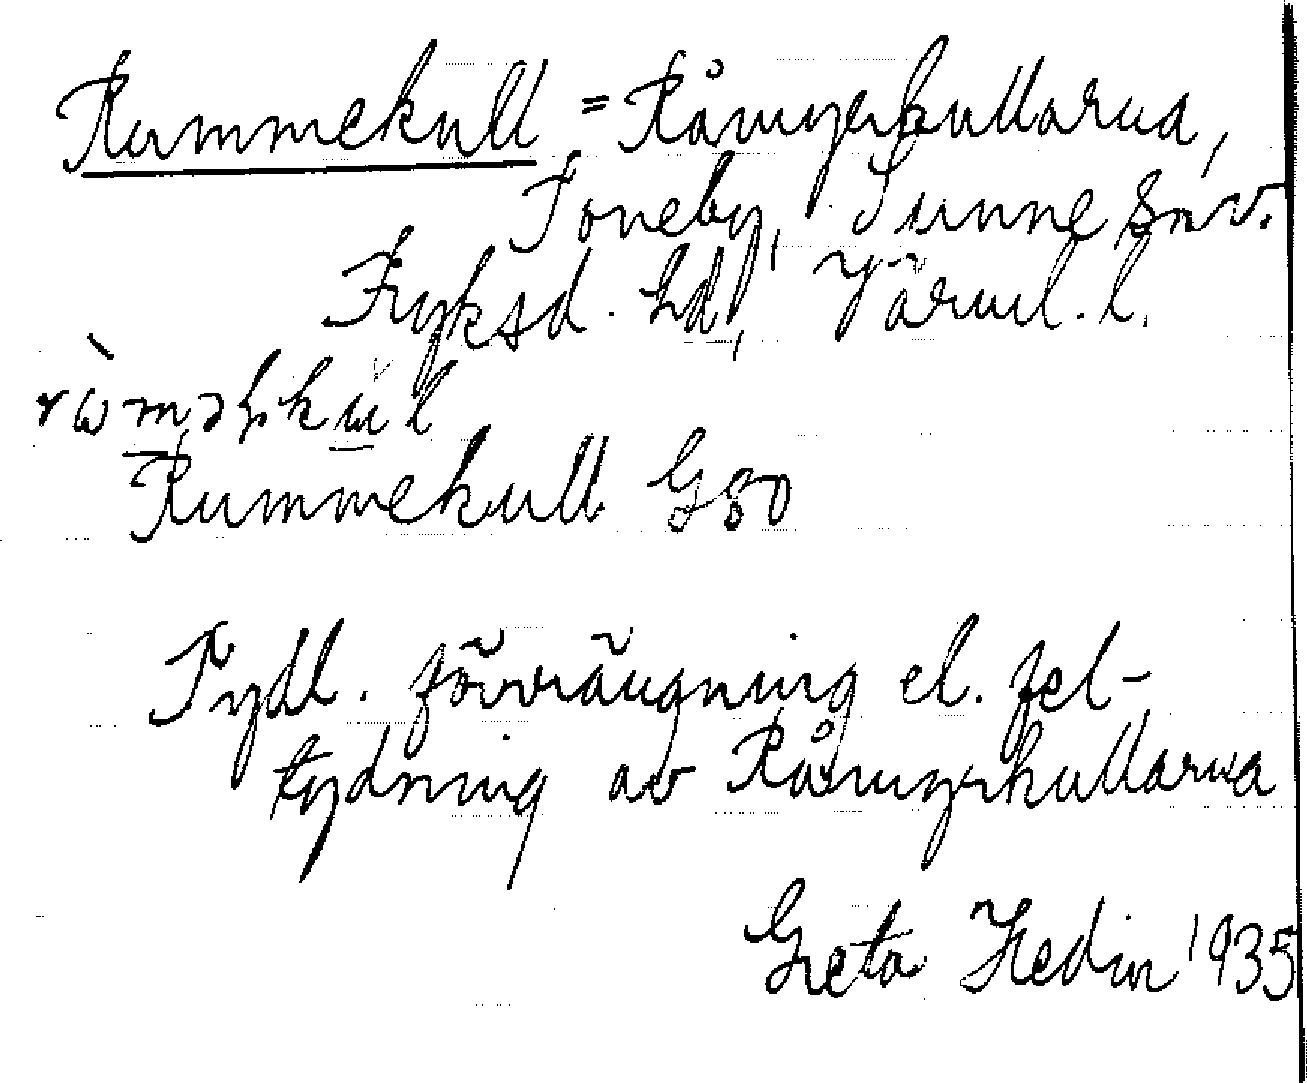 Rummekull = Råmyrkullarna,
Toneby, Sunne snv.
Fryksd. hd, Värml. l.
Rummekull G80
Tydl. förvrängning el. fel-
tydning av Råmyrkullarna
Greta Hedin 1935